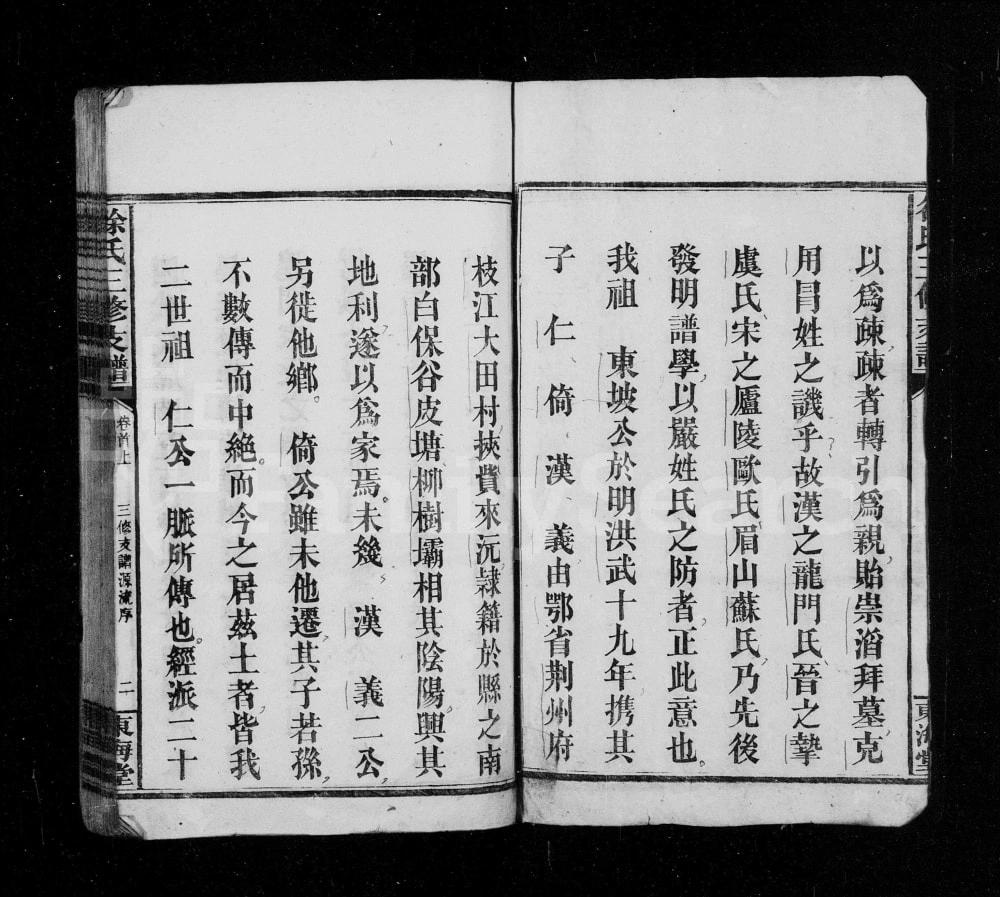 以爲疎疎者轉引爲親貽崇滔拜墓克
用冒姓之譏乎故漢之龍門氏晉之摯
虞氏宋之廬陵歐氏眉山蘇氏乃先後
發明譜學以嚴姓氏之防者正此意也
我祖 東坡公於明洪武十九年携其
子 仁 倚 漢 義由鄂省荆州府
枝江大田村挾貲來沅隷籍於縣之南
部白保谷皮塘栁樹壩相其陰陽興其
地利遂以爲家焉未幾 漢 義二公
另徙他鄉 倚公雖未他遷其子若孫
不數傳而中絶而今之居茲土者皆我
二世祖 仁公一脈所傳也經派二十
徐氏三修支譜 卷首上 三修支譜源流序 二 東海堂
FamilySearch